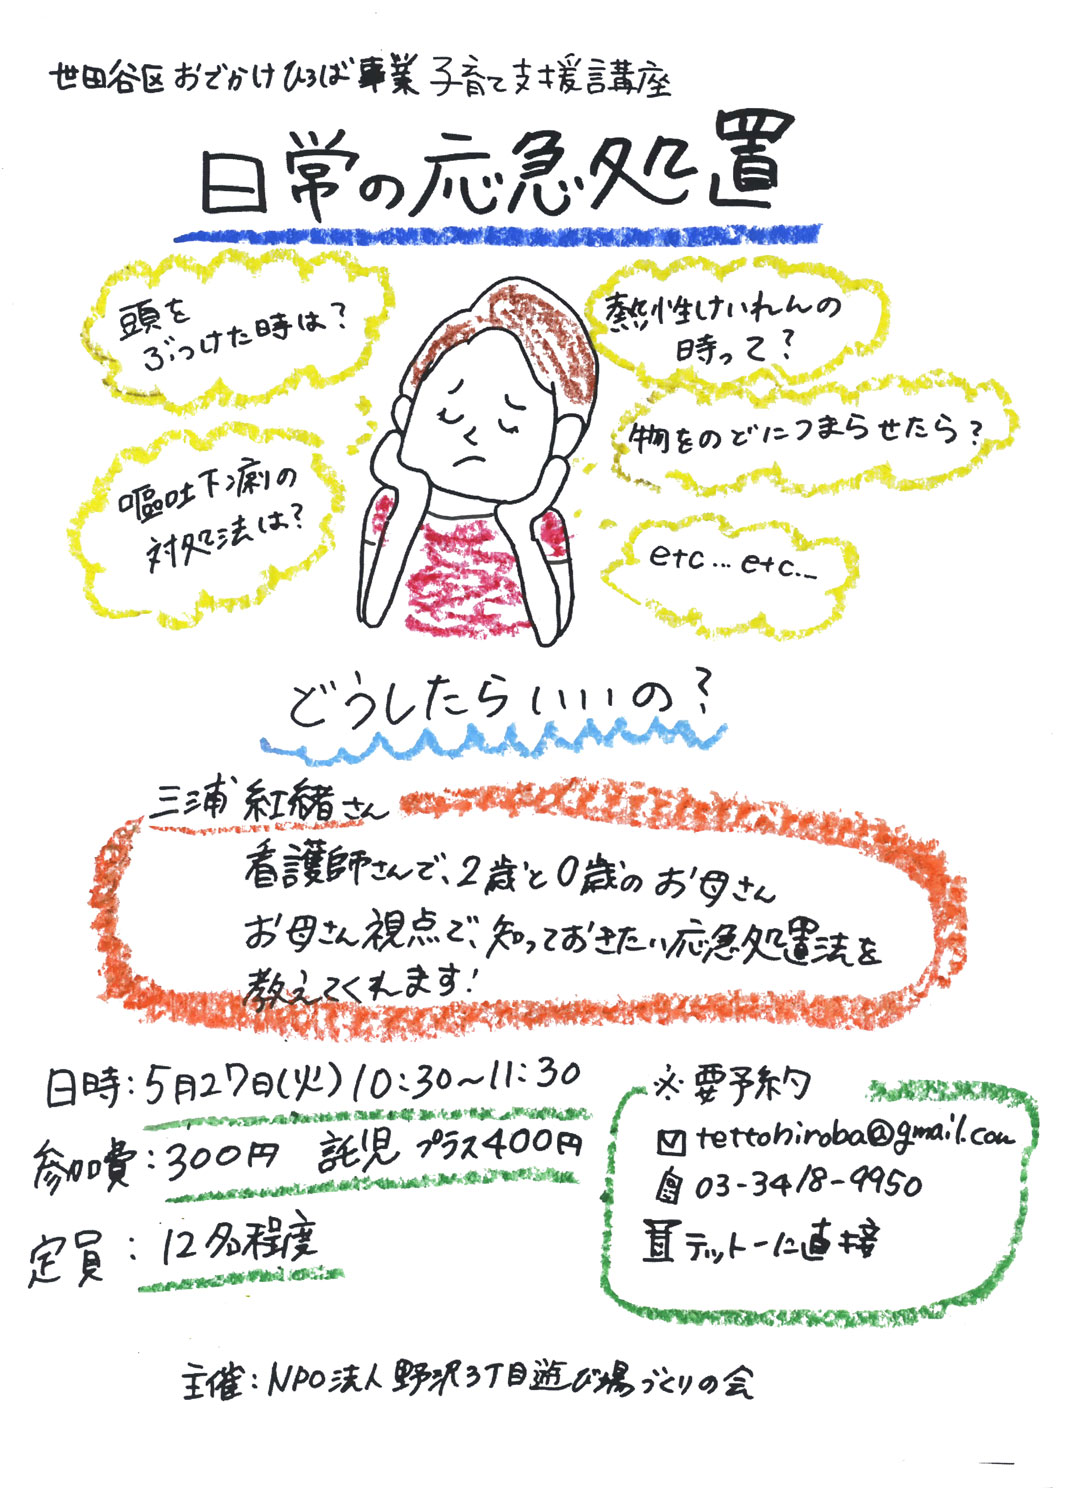 世田谷区おでかけひろば事業 子育て支援講座
日常の応急処置
頭を
ぶつけた時は?
熱性けいれんの
時って?
物をのどにつまらせたら?
嘔吐下痢の
対処法は?
etc... etc...
どうしたらいいの?
三浦 紅緒さん
看護師さんで、2歳と0歳のお母さん
お母さん視点で、知っておきたい応急処置法を
教えてくれます!
日時:5月27日(火)10:30〜11:30
参加費:300円 託児 プラス400円
定員:12名程度
※要予約
tettohiroba@gmail.com
03-3418-9950
テットーに直接
主催:NPO法人野沢3丁目遊び場づくりの会